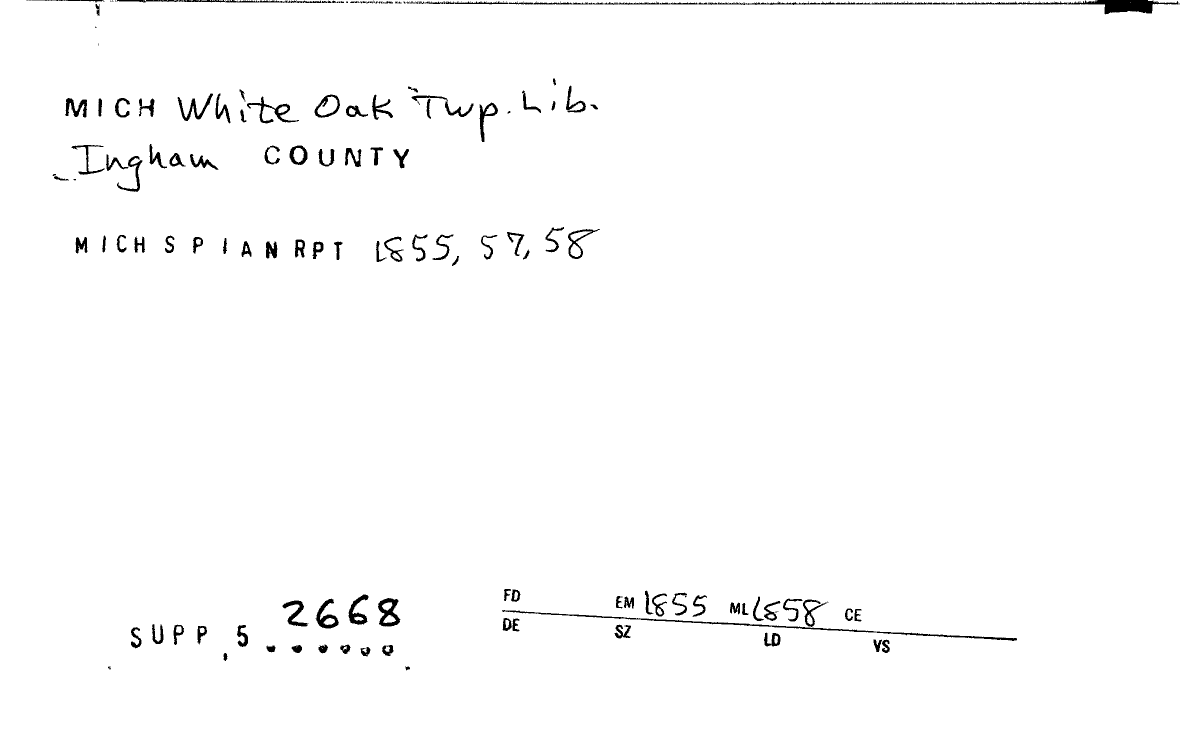 MICH White Oak Twp. Lib.
Ingham COUNTY
MICH S P I A N RPT 1855, 57, 58
2668
SUPP, 5 ......
FD EM 1855 ML 1858 CE
DE SZ LD VS